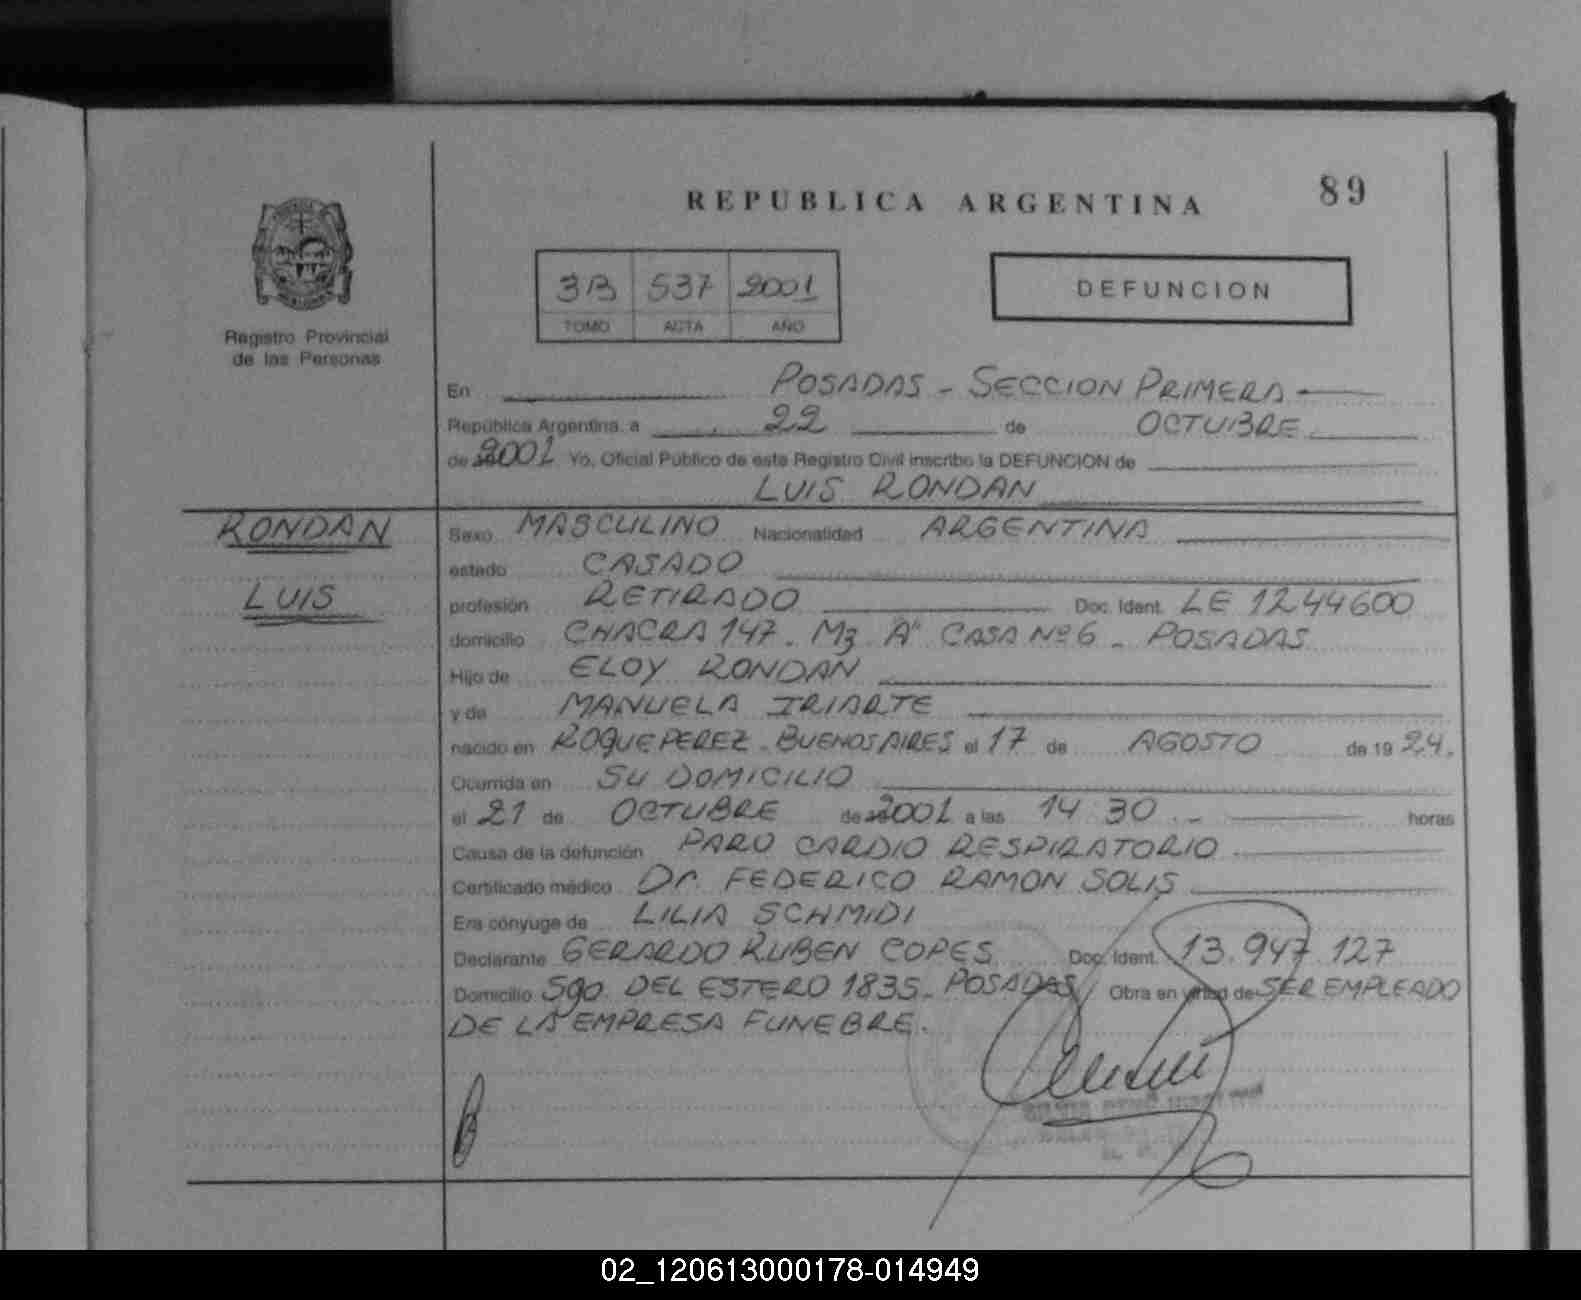 REPUBLICA ARGENTINA
89
Registro Provincial
de las Personas
3B 537 2001
TOMO ACTA AÑO
DEFUNCION
En POSADAS - SECCION PRIMERA
República Argentina, a 22 de OCTUBRE
de 2001 Yo, Oficial Público de este Registro Civil inscribo la DEFUNCION de
LUIS RONDAN
RONDAN
LUIS
Sexo MASCULINO Nacionalidad ARGENTINA
estado CASADO
profesión RETIRADO Doc. Ident. LE 1244600
domicilio CHACRA 147. Mz "A" CASA Nº 6 - POSADAS
Hijo de ELOY RONDAN
y de MANUELA IRIARTE
nacido en ROQUE PEREZ - BUENOS AIRES el 17 de AGOSTO de 1924.
Ocurrida en SU DOMICILIO
el 21 de OCTUBRE de 2001 a las 14 30 horas
Causa de la defunción PARO CARDIO RESPIRATORIO
Certificado médico Dr. FEDERICO RAMON SOLIS
Era cónyuge de LILIA SCHMIDI
Declarante GERARDO RUBEN COPES Doc. Ident. 13.947.127
Domicilio Sgo. DEL ESTERO 1835 - POSADAS Obra en virtud de SER EMPLEADO
DE LA EMPRESA FUNEBRE.
02_120613000178-014949